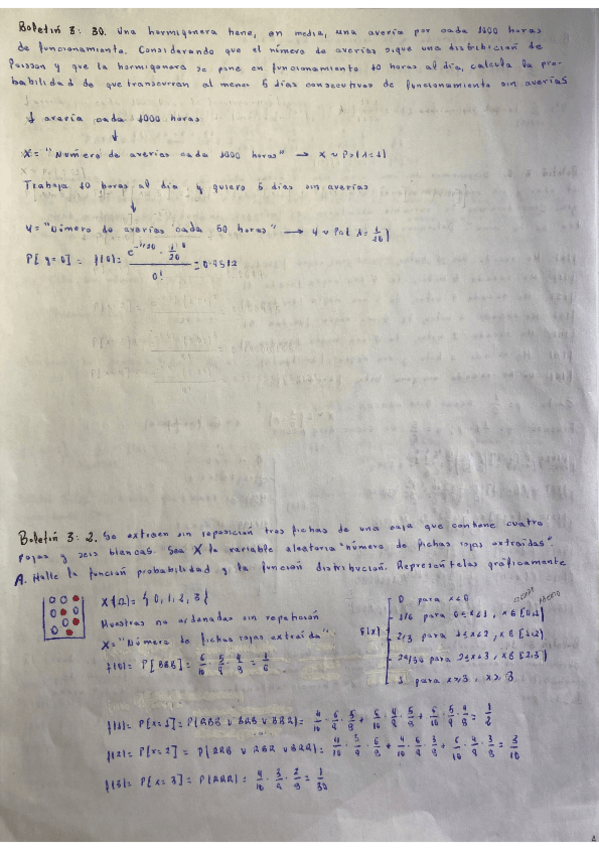 Boletín 3: 30. Una hormigonera tiene, en media, una avería por cada 1000 horas
de funcionamiento. Considerando que el número de averías sigue una distribución de
Poisson y que la hormigonera se pone en funcionamiento 10 horas al día, calcula la pro-
babilidad de que transcurran al menos 5 días consecutivos de funcionamiento sin averías
1 avería cada 1000 horas
↓
X = "Número de averías cada 1000 horas" → X ~ Po(λ=1)
Trabaja 10 horas al día y quiero 5 días sin averías
↓
Y = "Número de averías cada 50 horas" → Y ~ Po(λ = 1/20)
P[y=0] = f(0) = e^(-1/20) · (1/20)^0 / 0! = 0.9512
Boletín 3: 2. Se extraen sin reposición tres fichas de una caja que contiene cuatro
rojas y seis blancas. Sea X la variable aleatoria "número de fichas rojas extraídas".
A. Halle la función probabilidad y la función distribución. Represéntelas gráficamente
X(Ω) = {0, 1, 2, 3}
Muestras no ordenadas sin repetición
X = "Número de fichas rojas extraída".
f(0) = P[BBB] = 6/10 · 5/9 · 4/8 = 1/6
F(x)
0 para x<0
1/6 para 0≤x<1, x∈[0,1)
2/3 para 1≤x<2, x∈[1,2)
29/30 para 2≤x<3, x∈[2,3)
1 para x≥3, x≥3
f(1) = P[x=1] = P(RBB ∪ BRB ∪ BBR) = 4/10 · 6/9 · 5/8 + 6/10 · 4/9 · 5/8 + 6/10 · 5/9 · 4/8 = 1/2
f(2) = P[x=2] = P(RRB ∪ RBR ∪ BRR) = 4/10 · 3/9 · 6/8 + 4/10 · 6/9 · 3/8 + 6/10 · 4/9 · 3/8 = 3/10
f(3) = P[x=3] = P(RRR) = 4/10 · 3/9 · 2/8 = 1/30